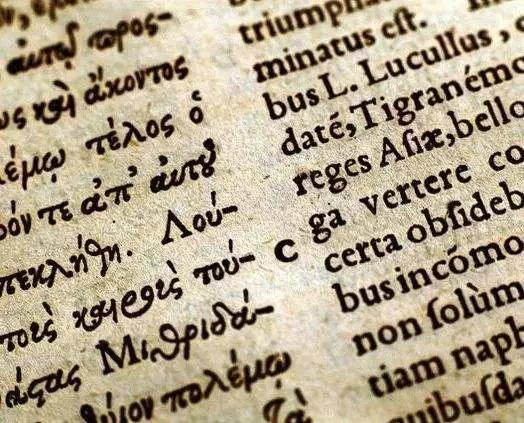 αὐτῷ προς-
καὶ ἄκοντος
λέμῳ τέλος ὁ
ρόν τε ἀπ' αὐτοῦ
πεκλήθη. Λού-
τού-
Μιθριδά-
πολέμῳ
Τὰ
triumpha
minatus eſt.
bus L. Lucullus,
daté, Tigranémo
reges Aſiæ, bello
C ga vertere co
certa obſideb
bus incómo
non ſolùm
tiam naph